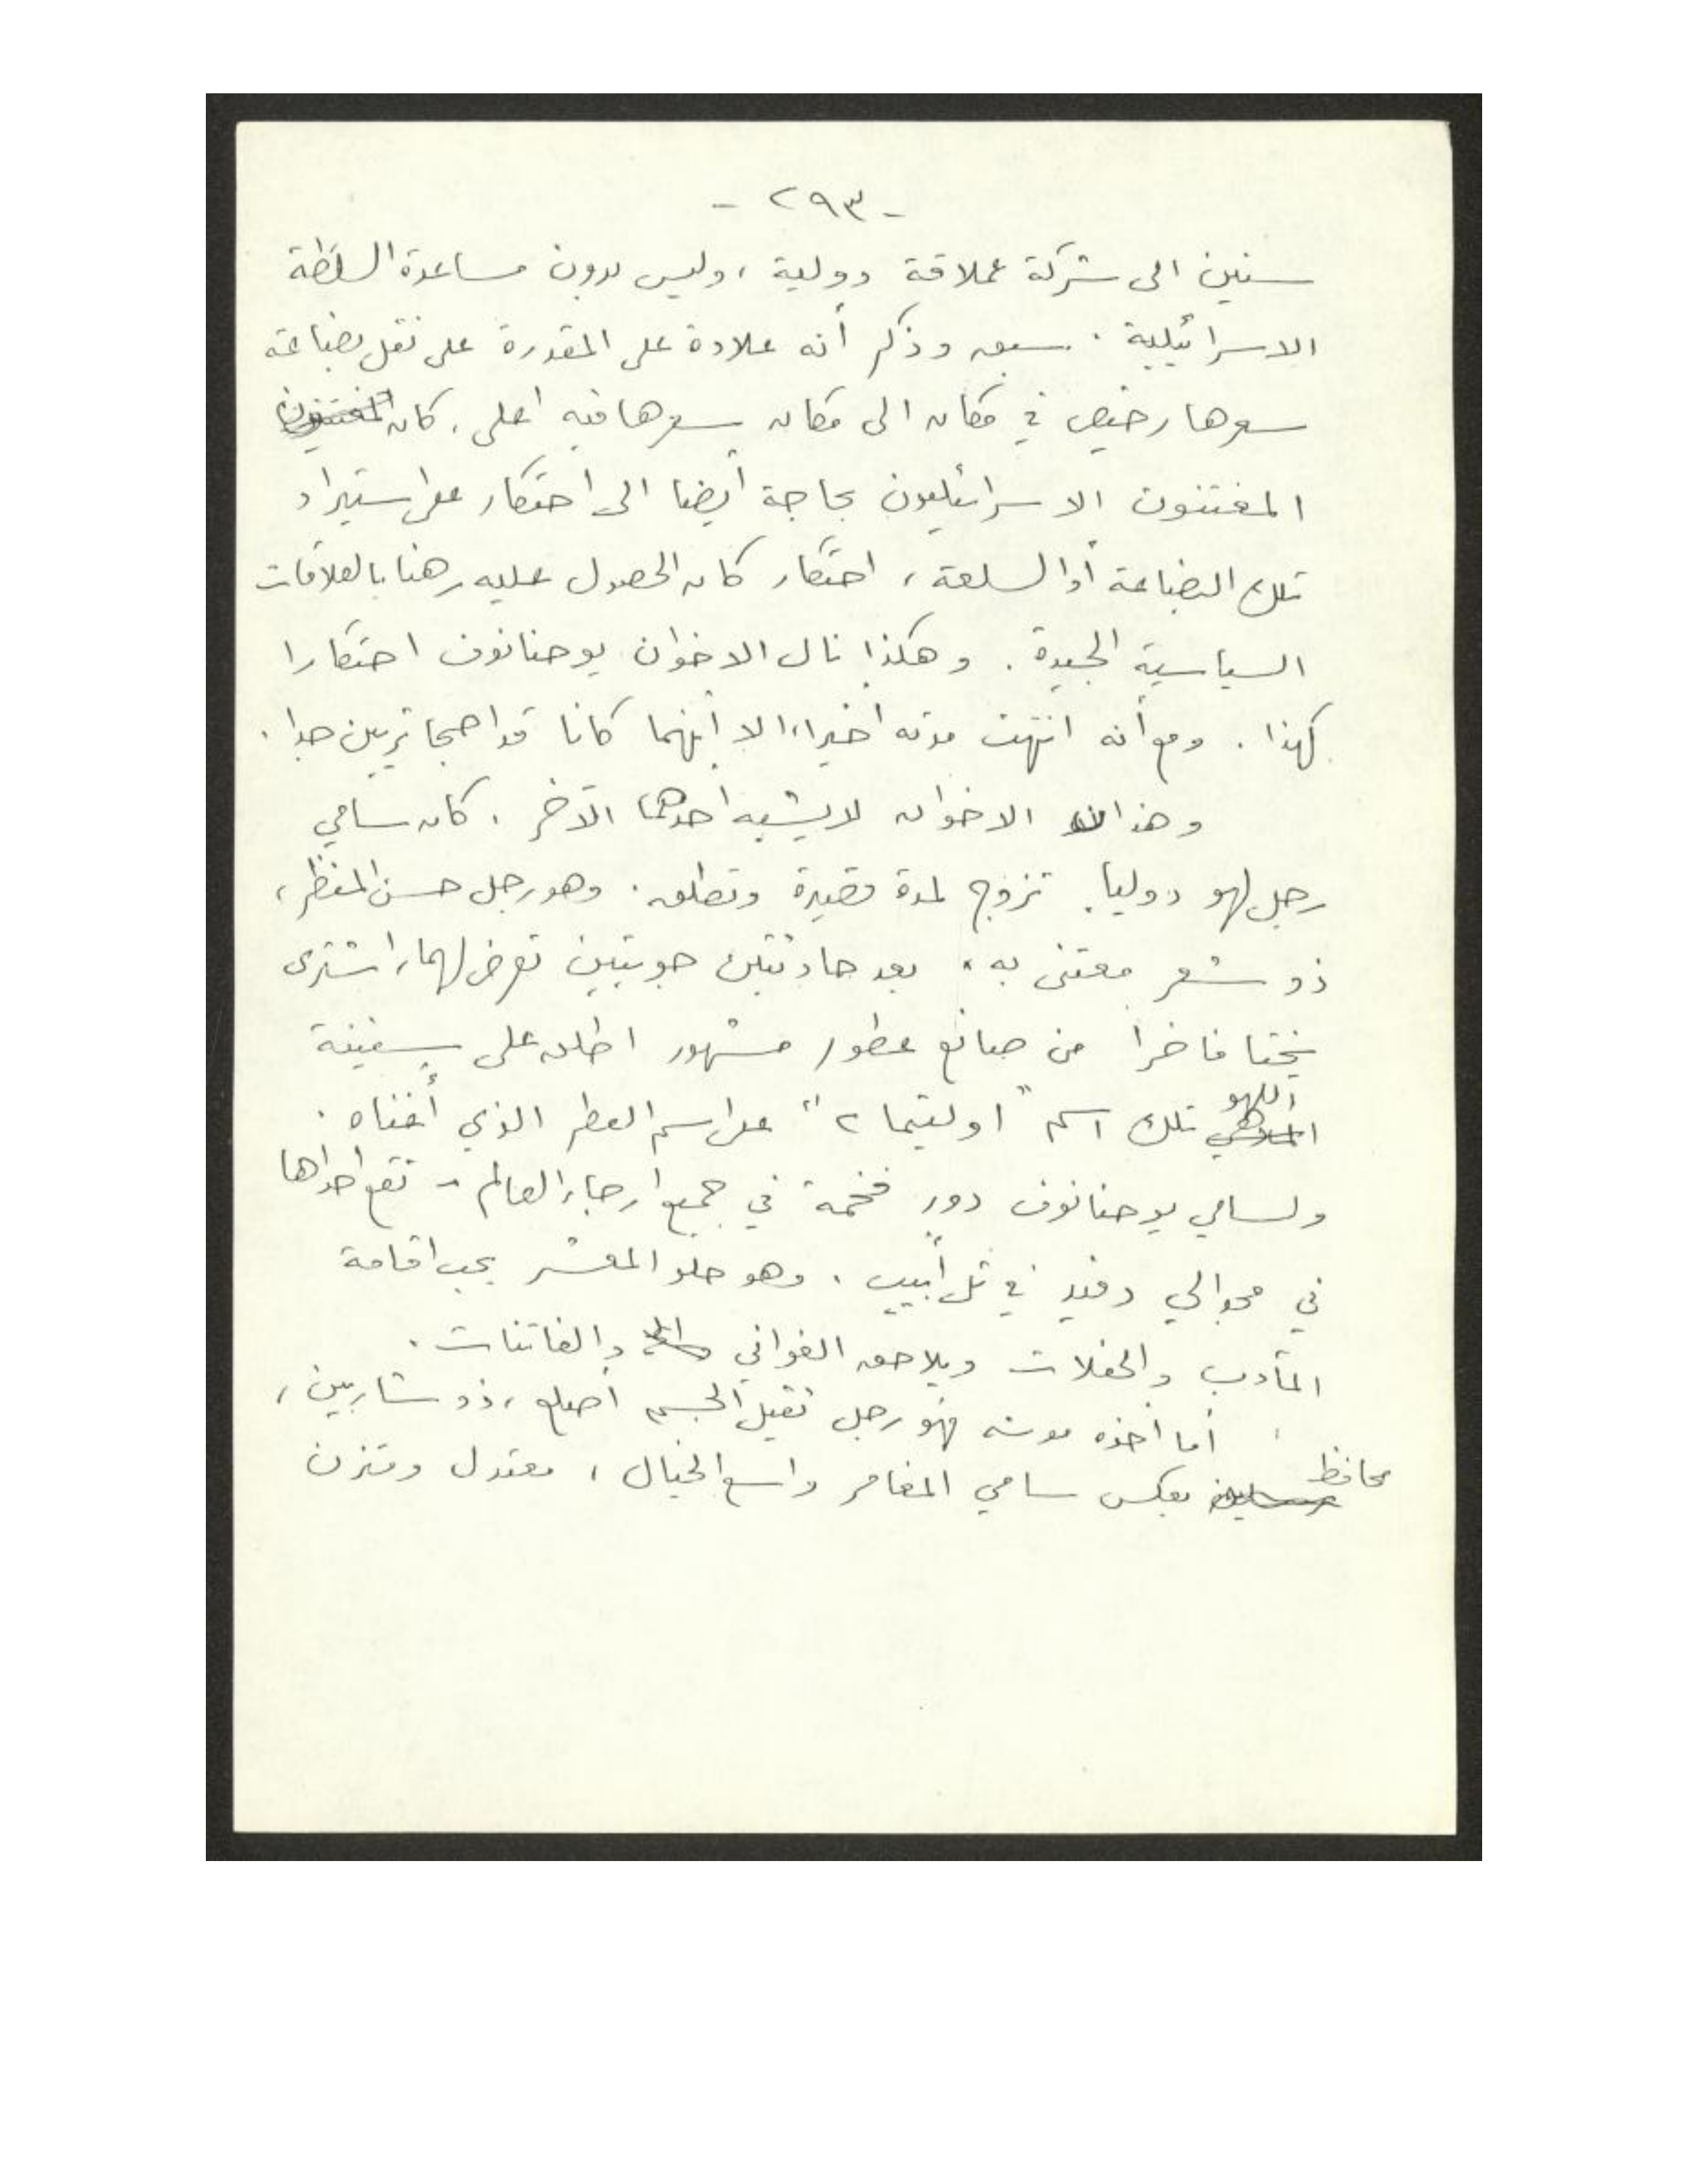 - ٢٩٣ -
سنين الى شركة عملاقة دولية ، وليس بدون مساعدة السلطة
الاسرائيلية . سبق وذكر أنه علاوة على المقدرة على نقل بضاعة
سعرها رخيص في مكان الى مكان سعرها فيه اعلى . كان المغتنون
المغتنون الاسرائيليون بحاجة أيضا الى احتكار على استيراد
تلك البضاعة أو السلعة ، احتكار كان الحصول عليه رهنا بالعلاقات
السياسية الجيدة . وهكذا نال الاخوان يوحنانوف احتكارا
كهذا . ومع أنه انتهت مدته أخيرا ، الا أنهما كانا قد اصبحا ثريين جدا .
وهذان الاخوان لا يشبه أحدهما الآخر . كان سامي
رجل لهو دوليا . تزوج لمدة قصيرة وتطلق . وهو رجل حسن المنظر ،
ذو شعر معتنى به . بعد حادثتين جويتين تعرض لهما ، اشترى
يختا فاخرا من صانع عطور مشهور اطلق على سفينة
اللهو
تلك اسم " اولتيما ٢ " على اسم العطر الذي أغناه .
ولسامي يوحنانوف دور فخمة في جميع ارجاء العالم - تقع احداها
في حوالي دفيد في تل أبيب . وهو حلو المعشر يحب اقامة
المآدب والحفلات ويلاحق الغواني والفاتنات .
أما أخوه موشه فهو رجل ثقيل الجسم أصلع ، ذو شاربين ،
محافظ
بعكس سامي المغامر واسع الخيال ، معتدل ومتزن